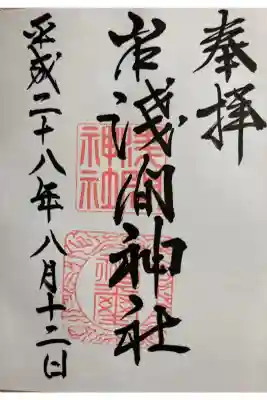 奉拝
淺間神社
平成二十八年八月十二日
淺間
神社